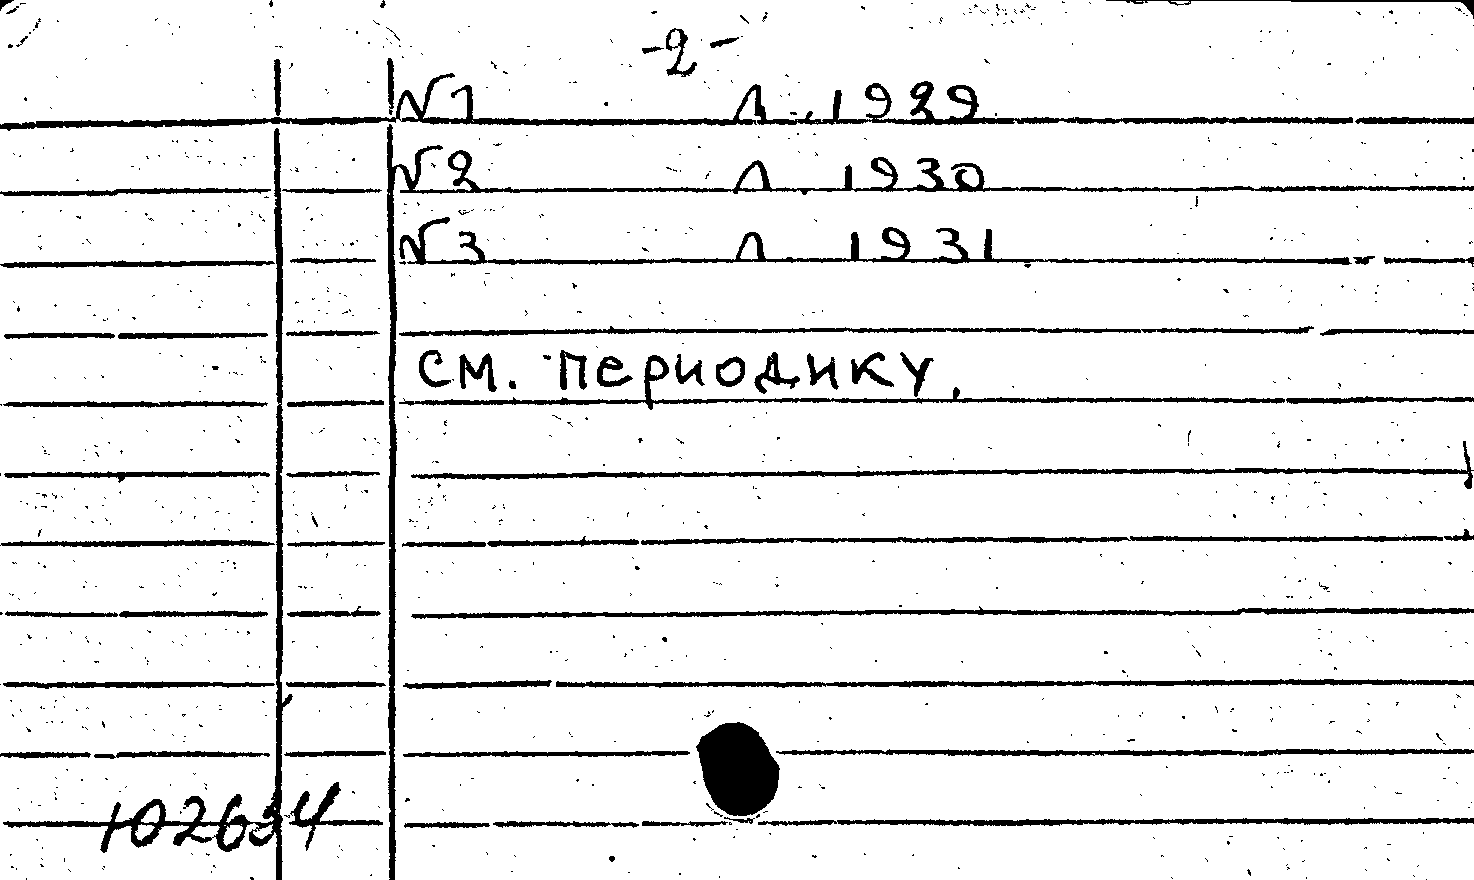 -2-
№1 Л., 1929
№2 Л. 1930
№3 Л. 1931
см. периодику.
102634